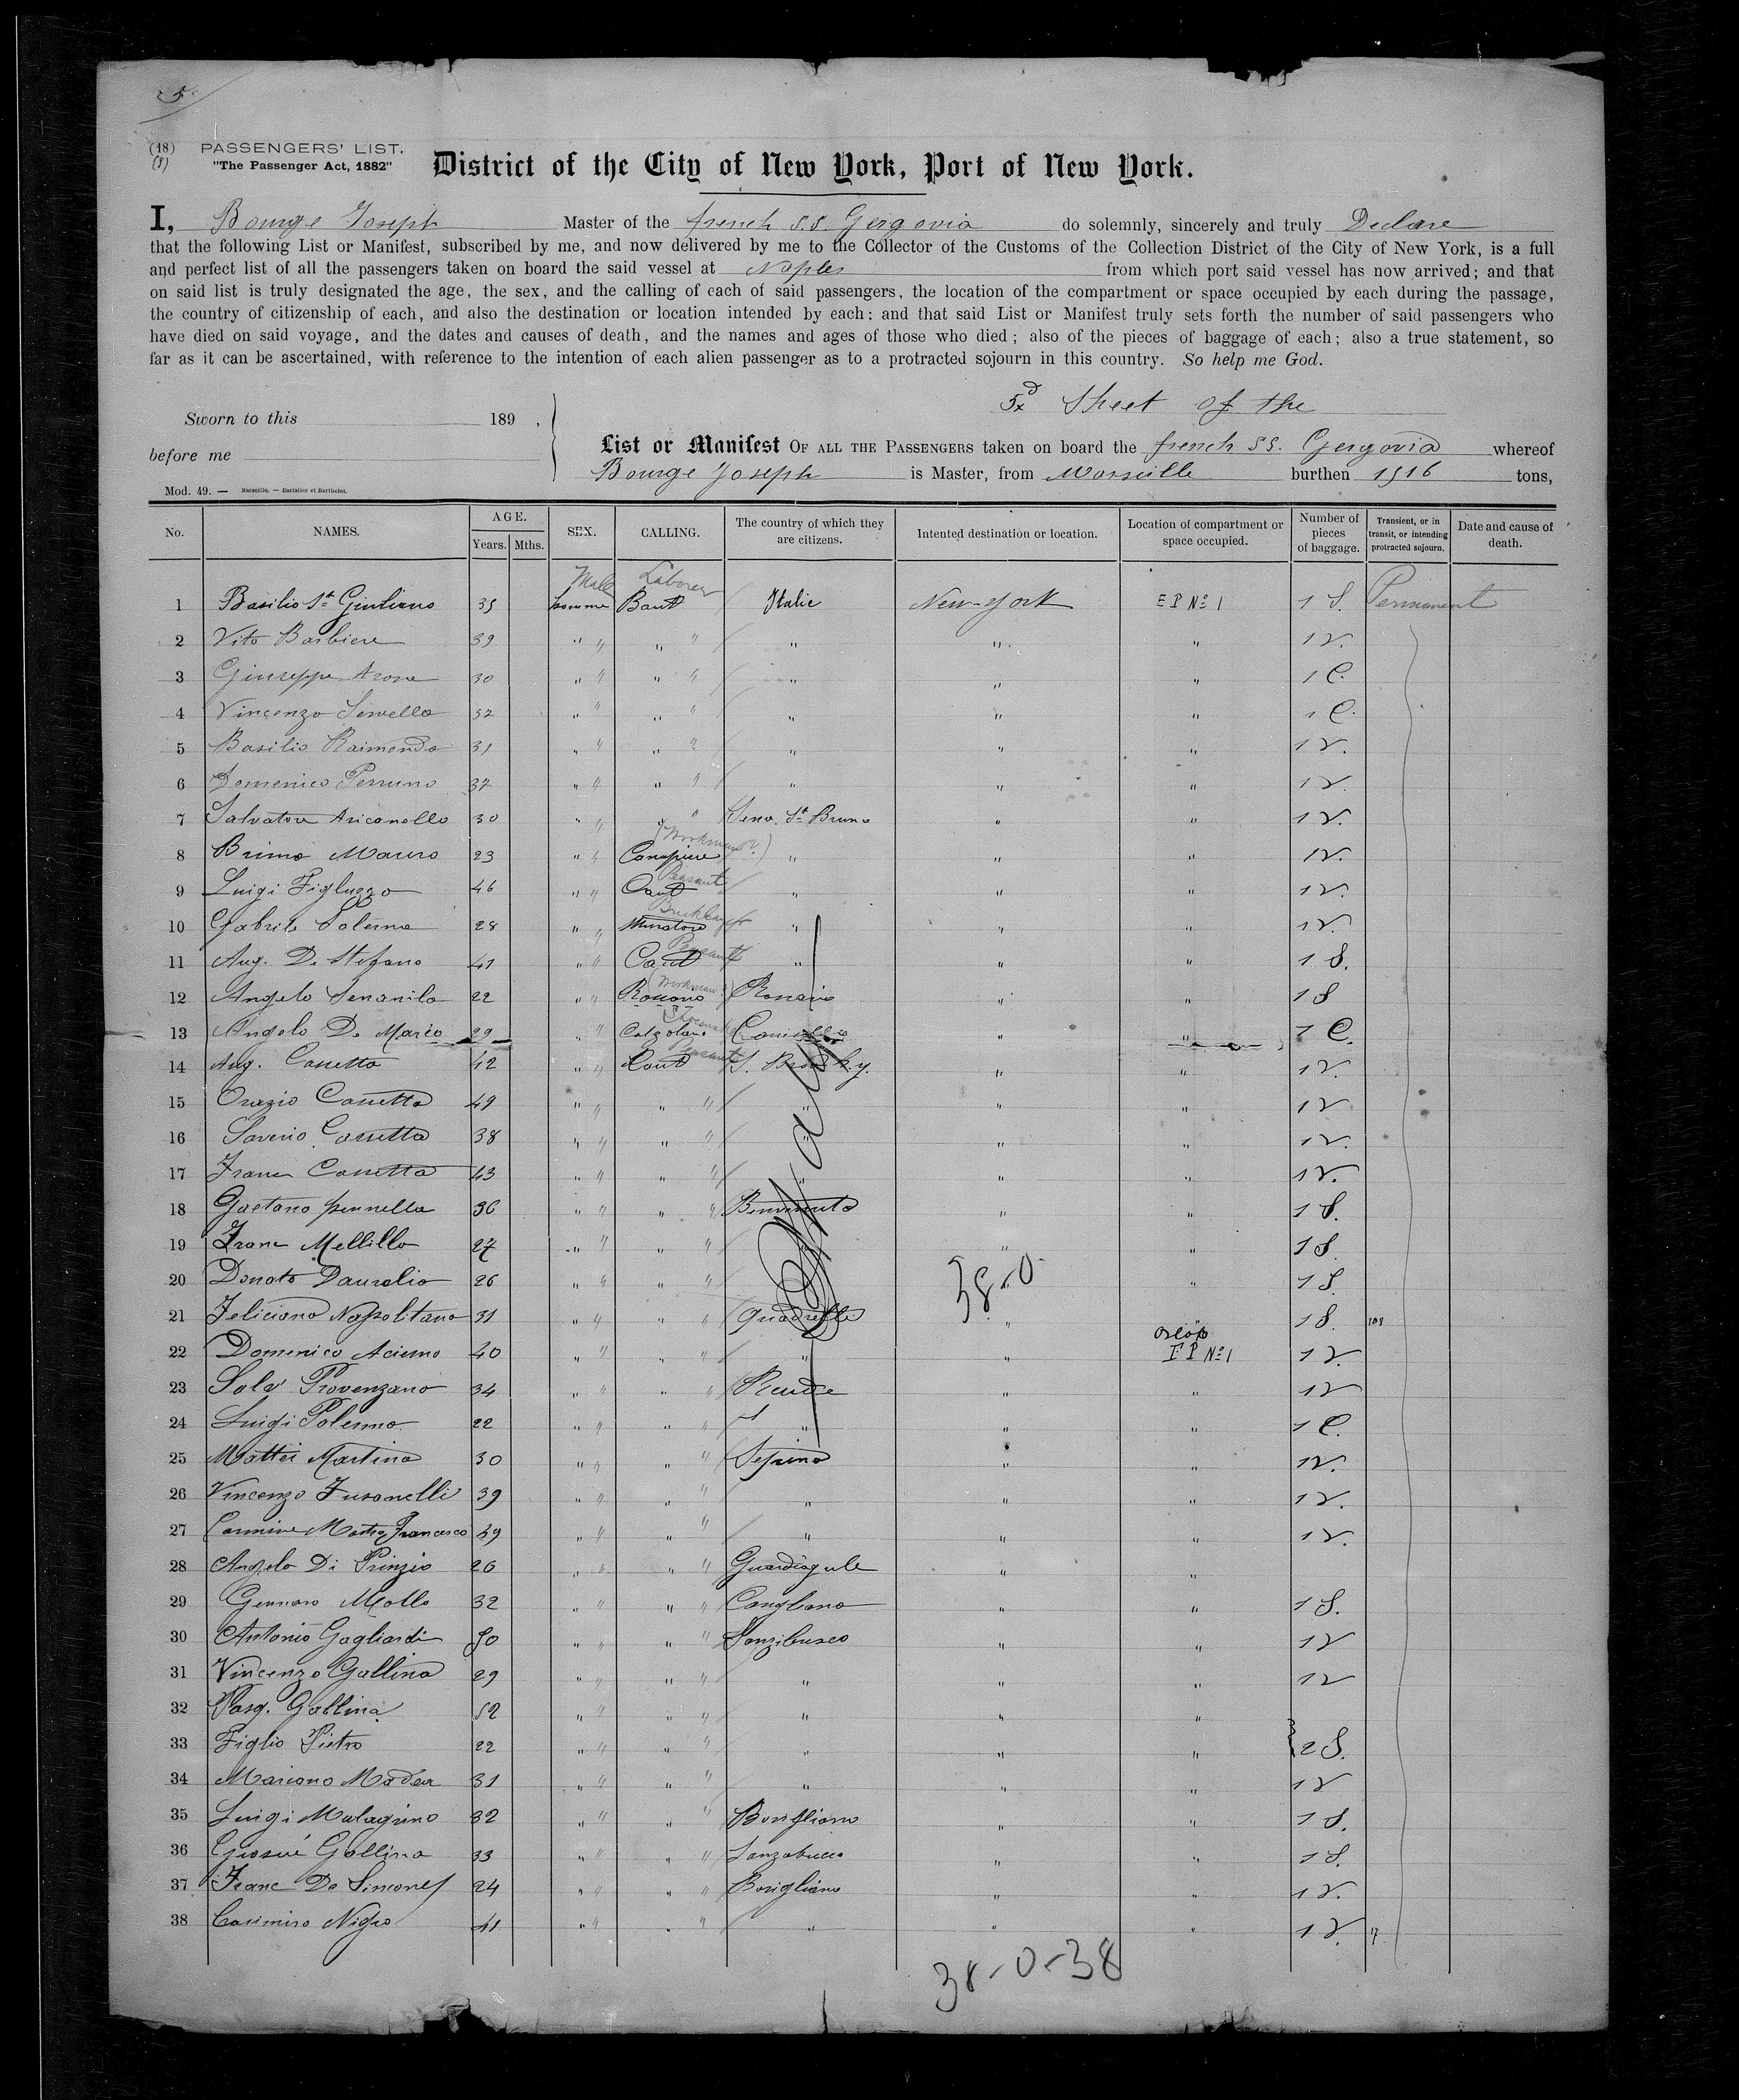 5
(18) PASSENGERS' LIST.
(8) "The Passenger Act, 1882"
District of the City of New York, Port of New York.
I, Bourge Joseph Master of the french S.S. Gergovia do solemnly, sincerely and truly Declare
that the following List or Manifest, subscribed by me, and now delivered by me to the Collector of the Customs of the Collection District of the City of New York, is a full
and perfect list of all the passengers taken on board the said vessel at Naples from which port said vessel has now arrived; and that
on said list is truly designated the age, the sex, and the calling of each of said passengers, the location of the compartment or space occupied by each during the passage,
the country of citizenship of each, and also the destination or location intended by each: and that said List or Manifest truly sets forth the number of said passengers who
have died on said voyage, and the dates and causes of death, and the names and ages of those who died; also of the pieces of baggage of each; also a true statement, so
far as it can be ascertained, with reference to the intention of each alien passenger as to a protracted sojourn in this country. So help me God.
Sheet of the
Sworn to this 189 ,
before me
List or Manifest OF ALL THE PASSENGERS taken on board the french SS. Gergovia whereof
Bourge Joseph is Master, from Marseille burthen 1916 tons,
Mod. 49. — Marseille. — Barlatier et Barthelet.
No. NAMES. AGE. Years. Mths. SEX. CALLING. The country of which they are citizens. Intented destination or location. Location of compartment or space occupied. Number of pieces of baggage. Transient, or in transit, or intending protracted sojourn. Date and cause of death.
Male Laborer
1 Basilio St Giuliano 35 homme Italie New-York E P No 1 1 S. Permanent
2 Vito Barbiere 39 " " " " " " " 1 V.
3 Giuseppe Arone 30 " " " " " " " 1 C.
4 Vincenzo 32 " " " " " " " 1 C.
5 Basilio Raimondo 31 " " " " " " " 1 V.
6 Domenico Perruno 37 " " " " " " " 1 V.
7 Salvatore 30 " " " " St Bruno " " 1 V.
8 Bruno Mauro 23 " " (Workman?) " " " 1 V.
9 Luigi Figluzzo 46 " " Peasant " " " 1 V.
10 Gabriele Palerma 28 " " Muratore Bricklayer " " " 1 V.
11 Aug. De Stefano 41 " " Peasant " " " 1 S.
12 Angelo 22 " " (Workman) " " 1 S
13 Angelo De Marco 29 " " Calzolaio Shoemaker " " 1 C.
14 Aug. Cassetta 42 " " Peasant " " 1 V.
15 Orazio Cassetta 49 " " " " " " " 1 V
16 Saverio Cassetta 38 " " " " " " 1 V.
17 Franc Cassetta 43 " " " " " " 1 V.
18 Gaetano pennella 36 " " " " " " 1 S.
19 Franc Mellillo 27 " " " " " 1 S.
20 Donato Daurelio 26 " " " " 38-0 " 1 S.
21 Feliciano Napolitano 31 " " " " Quadrelle " " 1 S.
22 Domenico Acierno 40 " " " " " " Orlop E P No 1 1 V.
23 Salv Provenzano 34 " " " " Rende " " 1 V
24 Luigi Palermo 22 " " " " " " " 1 C.
25 Mattei Martino 30 " " " " Sepino " " 1 V.
26 Vincenzo Fusanelli 39 " " " " " " " 1 V.
27 Carmine Mastro Francesco 49 " " " " " " " 1 V.
28 Angelo Di Prinzio 26 " " " " " "
29 Gennaro Mollo 32 " " " " " " 1 S.
30 Antonio Gagliardi 50 " " " " " " 1 V
31 Vincenzo Gallina 29 " " " " " " " 1 V
32 Pasq. Gallina 52 " " " " " " "
33 Figlio Pietro 22 " " " " " " " } 2 S.
34 Mariano 31 " " " " " " " 1 V
35 Luigi Malagrino 32 " " " " " " 1 S.
36 Giosué Gallina 33 " " " " " " 1 S.
37 Franc De Simone 24 " " " " " " 1 V.
38 Casimiro Nigro 41 " " " " " " " 1 V.
38-0-38